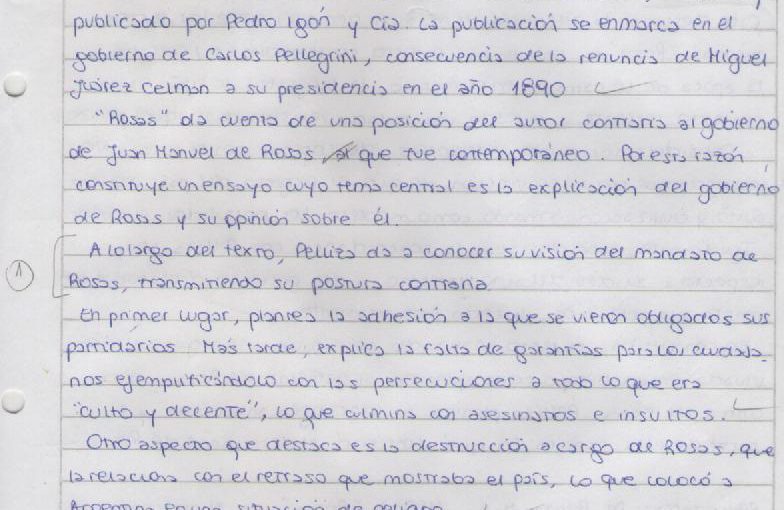 publicado por Pedro Igón y Cía. La publicación se enmarca en el
gobierno de Carlos Pellegrini, consecuencia de la renuncia de Miguel
Juárez Celman a su presidencia en el año 1890
"Rosas" da cuenta de una posición del autor contraria al gobierno
de Juan Manuel de Rosas, al que fue contemporáneo. Por esta razón
constituye un ensayo cuyo tema central es la explicación del gobierno
de Rosas y su opinión sobre él.
A lo largo del texto, Pelliza da a conocer su visión del mandato de
1 Rosas, transmitiendo su postura contraria
En primer lugar, plantea la adhesión a la que se vieron obligados sus
partidarios Más tarde, explica la falta de garantías para los ciudada-
nos ejemplificándolo con las persecuciones a todo lo que era
"culto y decente", lo que culmina con asesinatos e insultos.
Otro aspecto que destaca es la destrucción a cargo de Rosas, que
la relaciona con el retraso que mostraba el país, lo que colocó a
Argentina en una situación de peligro